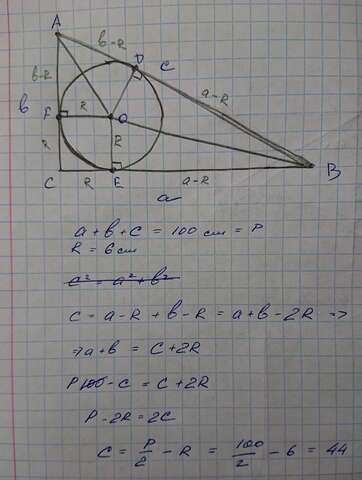 A
в-R
D
C
в-R
a-R
в
F
R
O
R
R
B
C
R
E
a-R
a
a + в + c = 100 см = P
R = 6 см
c² = a² + в²
c = a-R + в-R = a+в-2R =>
=> a+в = c+2R
P 100 - c = c+2R
P - 2R = 2c
c = P/2 - R = 100/2 - 6 = 44